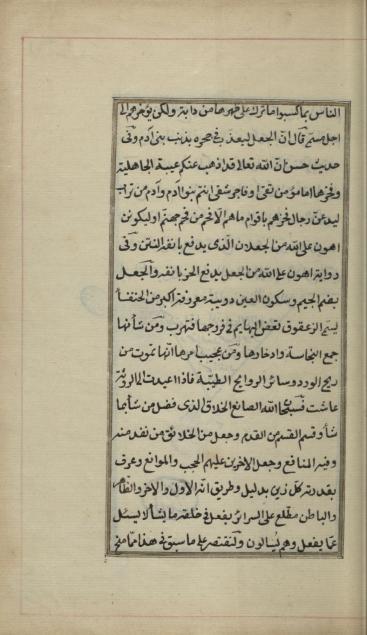 الناس بما كسبوا ما ترك على ظهرها من دابة ولكن يؤخرهم الى
اجل مسمى قال ان الجعل ليعذب في جحره بذنب بنى ادم وفى
حديث حسن ان الله تعالى قد اذهب عنكم عيبة الجاهلية
وفخرها اما مؤمن تقى او فاجر شقى انتم بنو ادم وادم من تراب
ليدعن رجال فخرهم باقوام ما هم الا فحم من فحم جهنم او ليكونن
اهون على الله من الجعلان الذى يدفع بانفه النتن وفى
رواية اهون على الله من الجعل يدفع الخرء بانفه والجعل
بضم الجيم وسكون العين دويبة معروفة اكبر من الخنفسا
يسمى الزعقوق تعض البهايم فى فروجها فتهرب ومن شانها
جمع النجاسة وادخارها ومن عجيب امرها انها تموت من
ريح الورد وساير الروايح الطيبة فاذا اعيدت الى الروث
عاشت فسبحان الله الصانع الخلاق الذى فضل من شا بما
شا وقسم القسم من القدم وجعل من الخلائق من نفد منه
وفيه المنافع وجعل الاخرين عليهم الحجب والموانع وعرف
بقدرته كل ذى بدليل وطريق انه الاول والاخر والظاهر
والباطن مطلع على السرائر يفعل فى خلقه ما يشأ لا يسئل
عما يفعل وهم يسالون ولنقتصر على ما سبق فى هذا مما منح